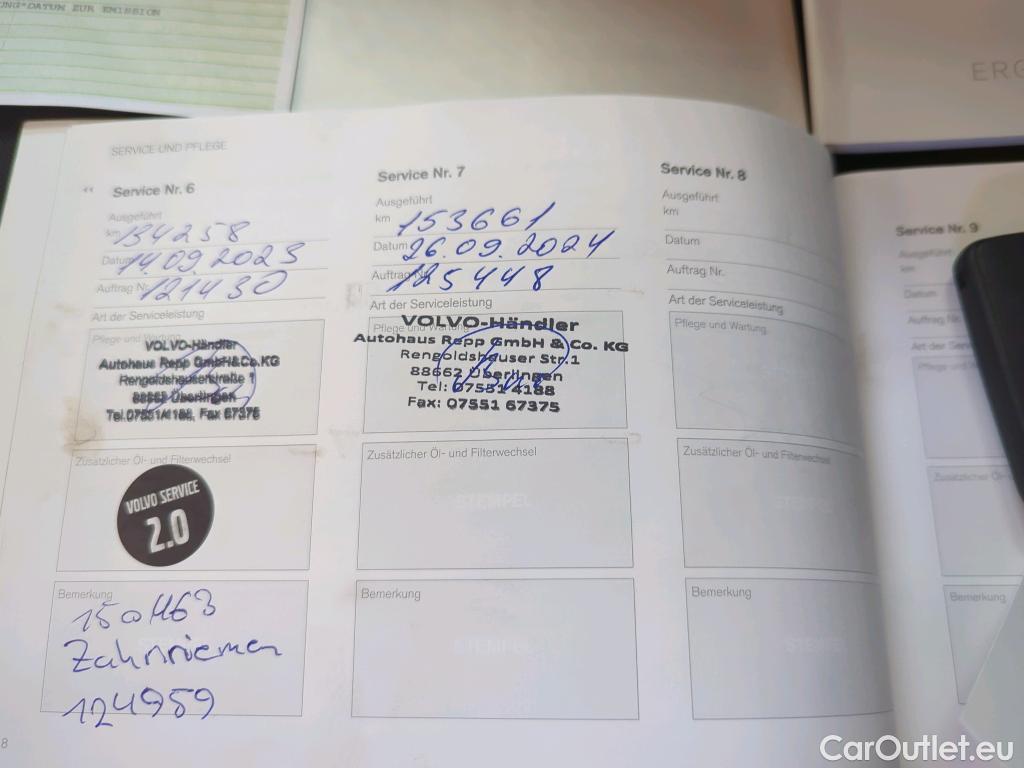 UNG*DATUM ZUR EMISSION
ERG
SERVICE UND PFLEGE
Service Nr. 6
Ausgeführt
km 134258
Datum 14.09.2023
Auftrag Nr. 121430
Art der Serviceleistung
Pflege und Wartung
VOLVO-Händler
Autohaus Repp GmbH & Co. KG
Rengoldshauserstraße 1
88662 Überlingen
Tel. 07551/4188, Fax 67375
Zusätzlicher Öl- und Filterwechsel
VOLVO SERVICE
2.0
Bemerkung
150463
Zahnriemen
124959
8
Service Nr. 7
Ausgeführt
km 153661
Datum 26.09.2024
Auftrag Nr. 125448
Art der Serviceleistung
Pflege und Wartung
VOLVO-Händler
Autohaus Repp GmbH & Co. KG
Rengoldshauser Str. 1
88662 Überlingen
Tel: 07551 4188
Fax: 07551 67375
Zusätzlicher Öl- und Filterwechsel
STEMPEL
Bemerkung
STEMPEL
Service Nr. 8
Ausgeführt
km
Datum
Auftrag Nr.
Art der Serviceleistung
Pflege und Wartung
Zusätzlicher Öl- und Filterwechsel
STEMPEL
Bemerkung
Service Nr. 9
Ausgeführt
km
Datum
Auftrag Nr.
Art der Ser
Pflege und Wa
Zusätzlicher
Bemerkung
CarOutlet.eu